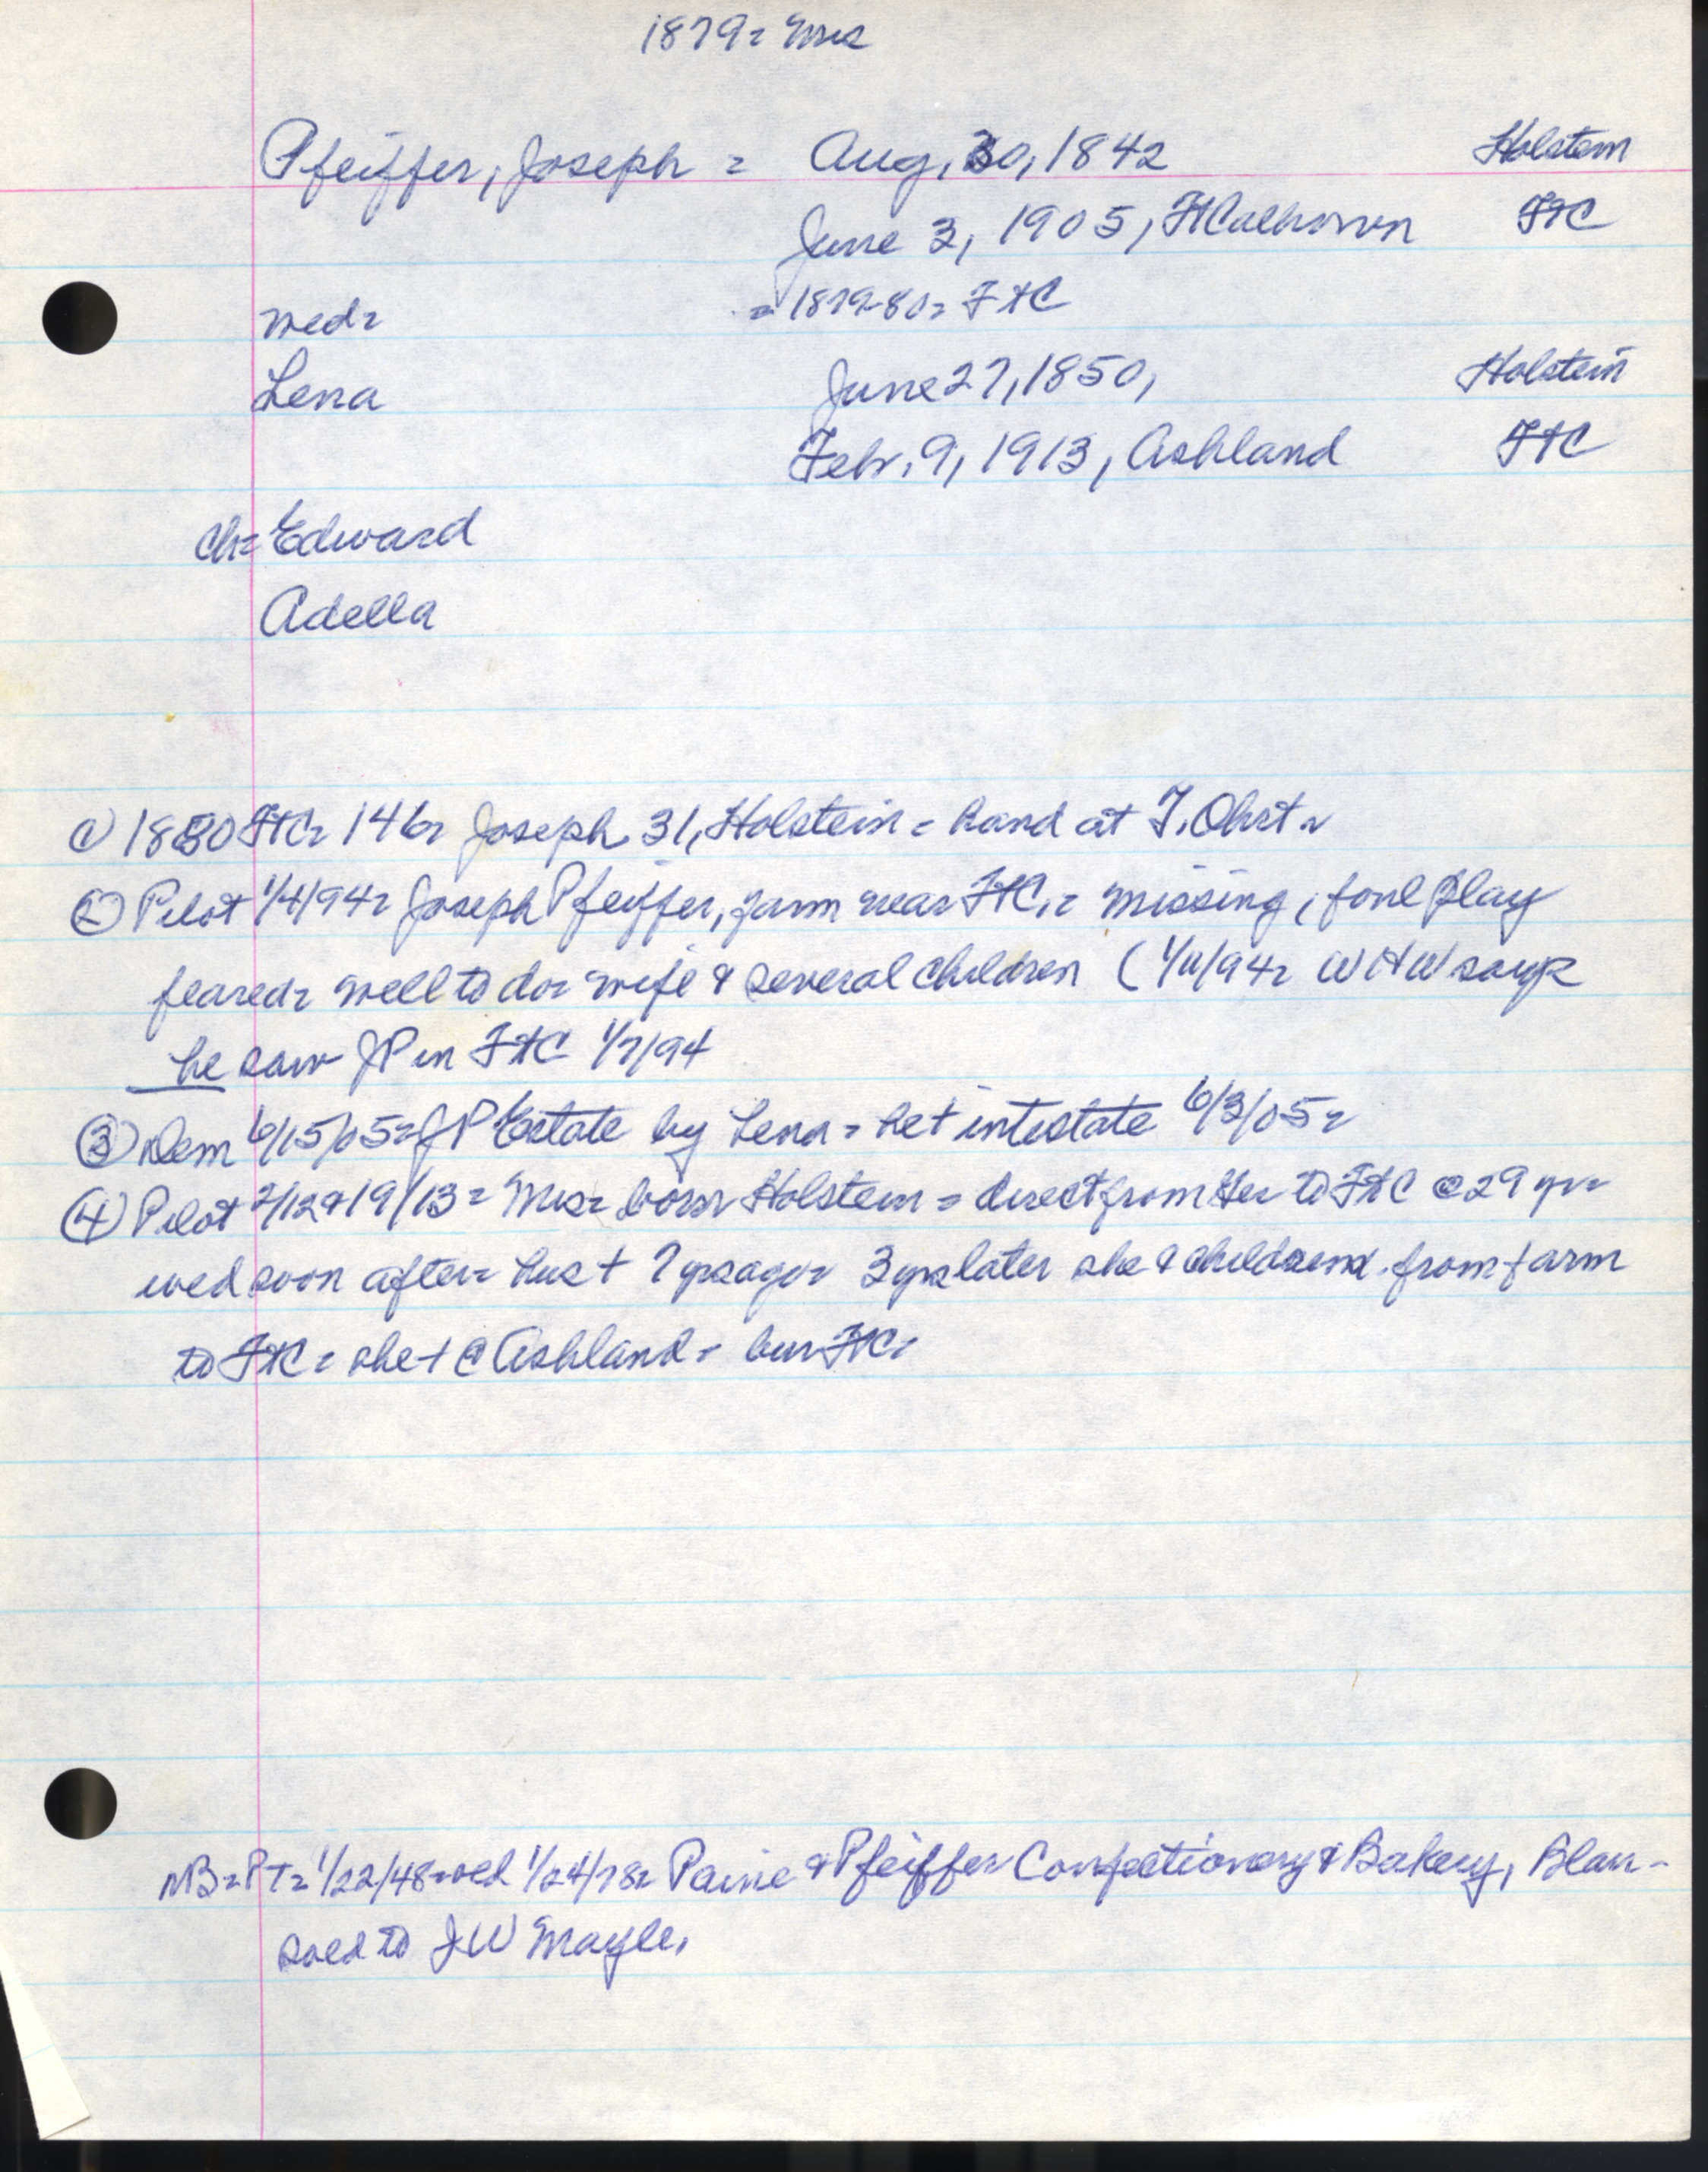 1879 = Mrs
Pfeiffer, Joseph = Aug. 30, 1842 Holstein
June 3, 1905, FtCalhoun FtC
wed = = 1879-80 = FtC
Lena June 27, 1850, Holstein
Febr. 9, 1913, Ashland FtC
ch = Edward
Adella
① 1880 FtC = 146 = Joseph 31, Holstein = hand at J. Ohrt =
② Pilot 1/4/94 = Joseph Pfeiffer, farm near FtC. = missing, foul play
feared = well to do = wife & several children (1/11/94 = WHW says
he saw JP in FtC 1/7/94
③ Dem 6/15/05 = JP Estate by Lena = he † intestate 6/3/05 =
④ Pilot 2/12&19/13 = Mrs = born Holstein = direct from Ger to FtC @ 29 yrs
wed soon after = hus † 7 yrs ago = 3 yrs later she & children from farm
to FtC = she † @ Ashland = bur FtC.
NB = PT = 1/22/48 = 1/24/78 = Paine & Pfeiffer Confectionery & Bakery, Blair -
sold to JW Mayle.